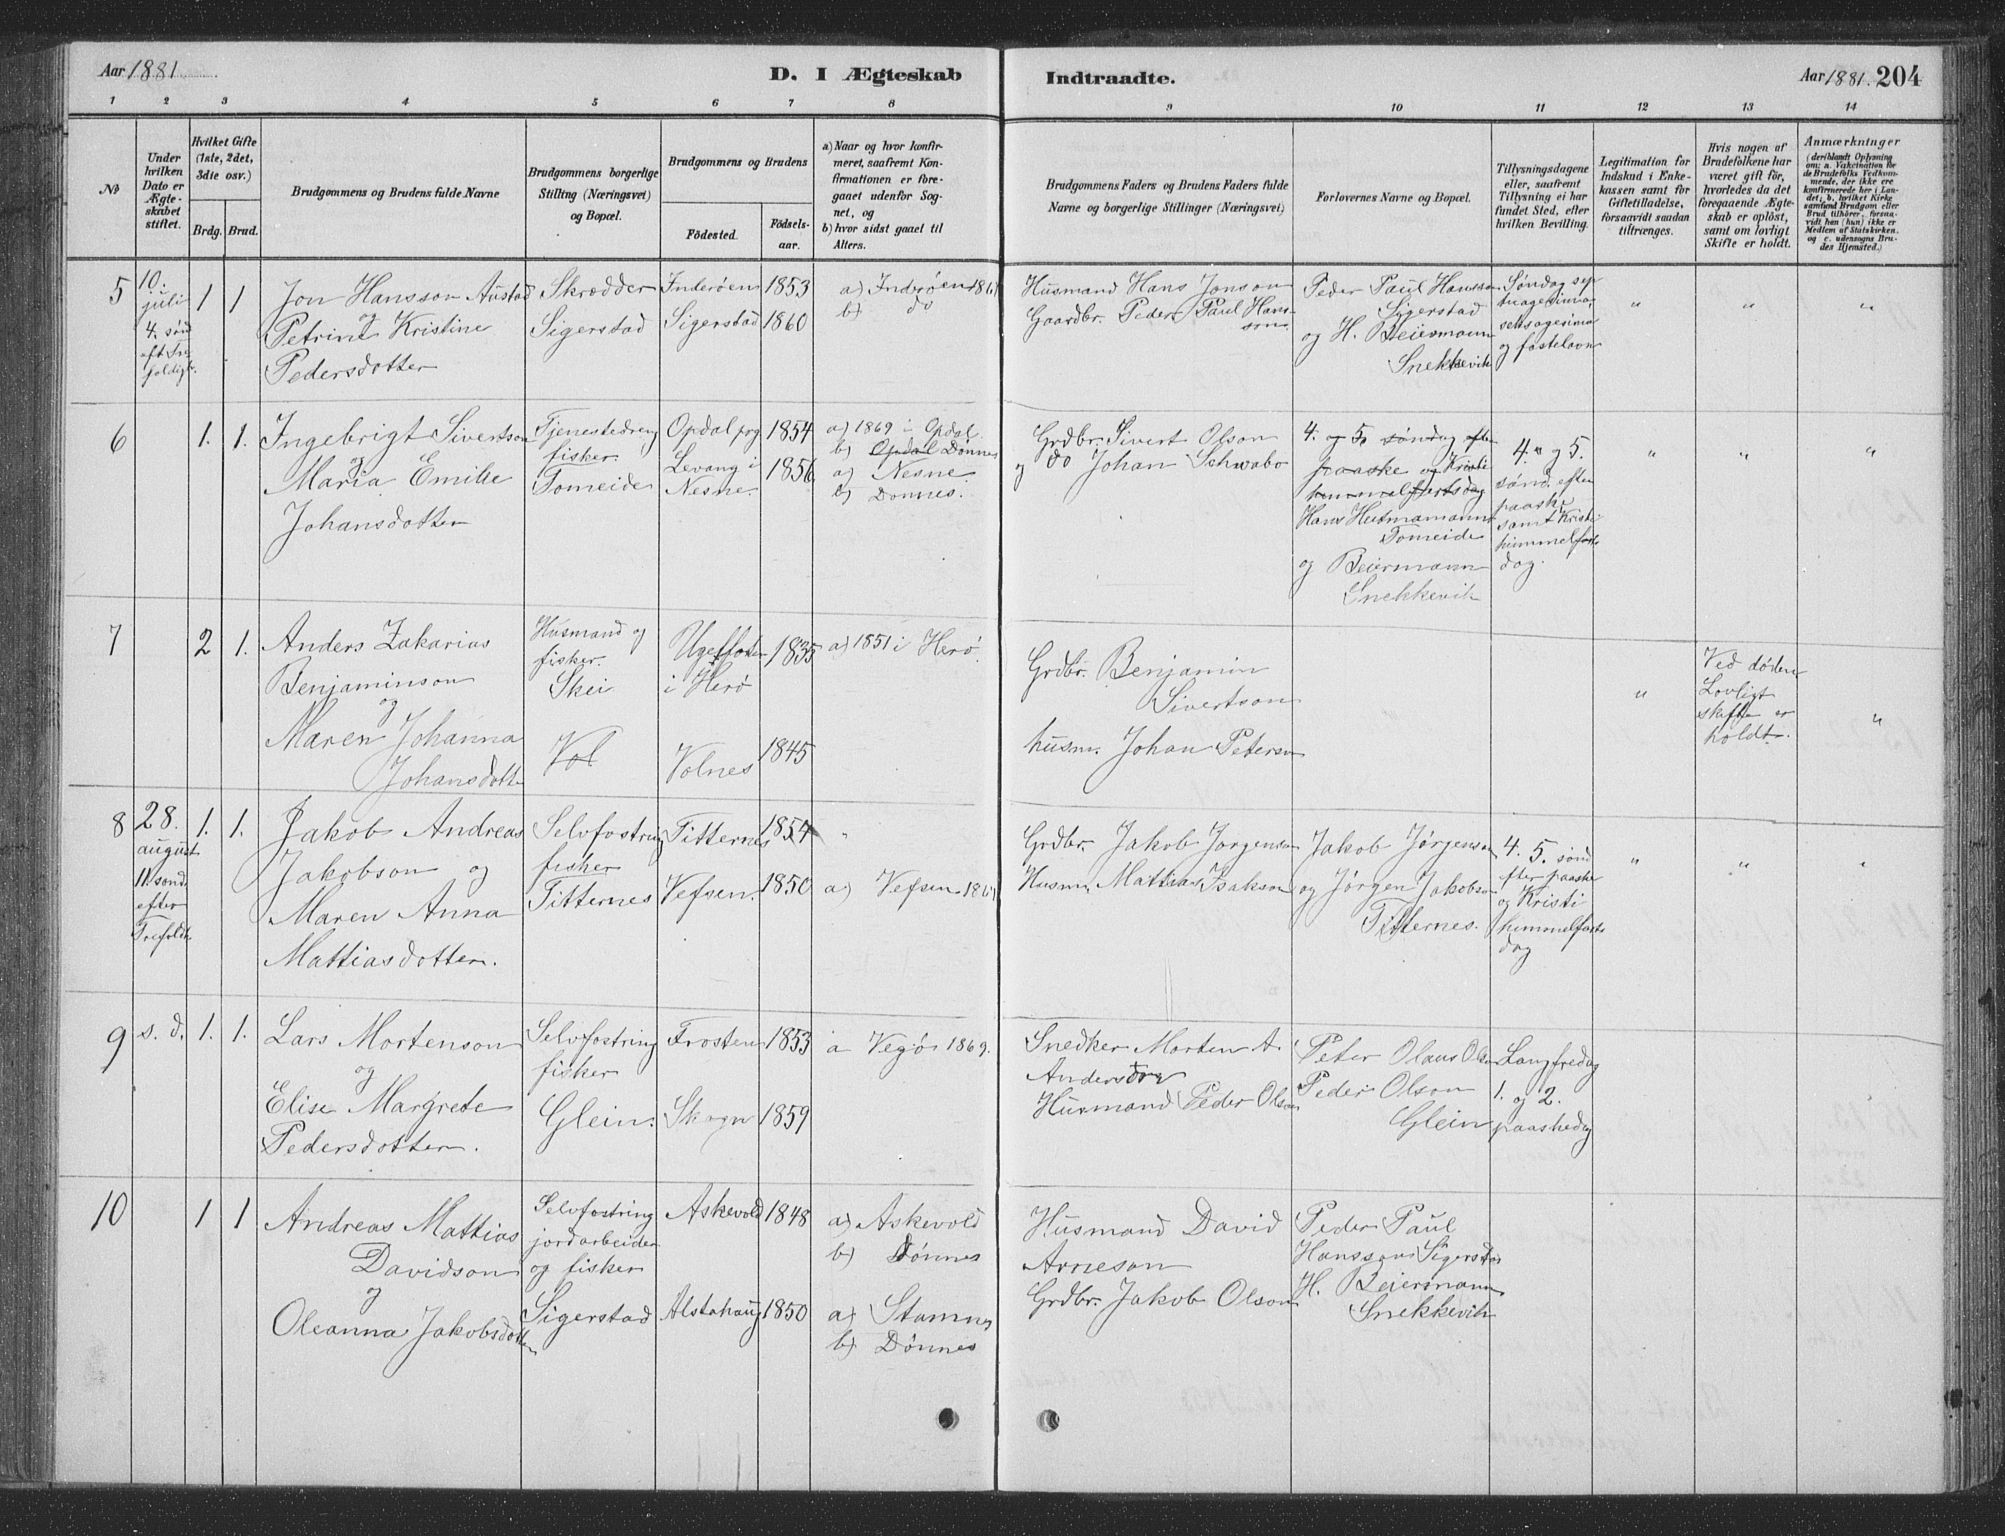 Aar 1881
D. I Ægteskab
Indtraadte.
Aar 1881. 204
1 2 3 4 5 6 7 8 9 10 11 12 13 14
No
Under hvilken Dato er Ægteskabet stiftet.
Hvilket Gifte (1ste, 2det, 3die osv.)
Brdg. Brud.
Brudgommens og Brudens fulde Navne
Brudgommens borgerlige Stilling (Næringsvei) og Bopæl.
Brudgommens og Brudens
Fødested. Fødselsaar.
a) Naar og hvor konfirmeret, saafremt Konfirmationen er foregaaet udenfor Sognet, og
b) hvor sidst gaaet til Alters.
Brudgommens Faders og Brudens Faders fulde Navne og borgerlige Stillinger (Næringsvei)
Forlovernes Navne og Bopæl.
Tillysningsdagene eller, saafremt Tillysning ei har fundet Sted, efter hvilken Bevilling.
Legitimation for Indskud i Enkekassen samt for Giftetilladelse, forsaavidt saadan tiltrænges.
Hvis nogen af Brudefolkene har været gift før, hvorledes da det foregaaende Ægteskab er opløst, samt om lovligt Skifte er holdt.
Anmærkninger
(deriblandt Oplysning om: a. Vakcination for de Brudefolks Vedkommende, der ikke ere konfirmerede her i Landet; b. hvilket Kirkesamfund Brudgom eller Brud tilhører, forsaavidt han (hun) ikke er Medlem af Statskirken, og c. udensogns Brudes Hjemsted.)
5
10. juli
4. sønd
eft Tre
foldigh.
1 1
Jon Hansson Austad
og
Petrine Kristine
Pedersdotter
Skrædder
Sigerstad
Inderöen 1853
Sigerstad 1860
a) Inderöen
b) do
Husmand Hans Jonson
Gaardbr. Peder Paul Hansson
Peder Paul Hansson
Sigerstad
og H. Beiermann
Snekkevik
Søndag septuagesima
seksagesima
og fastelavn
" " "
6
1. 1.
Ingebrigt Sivertson
og
Maria Emilie
Johansdotter
Tjenestedreng
fisker
Tomeide
Opdal prg 1854
Levang i
Nesne. 1856
a) 1869 i Opdal
b) Opdal Dönnes
a) Nesne
b) Dönnes.
Grdbr. Sivert Olson
og do Johan Schwabo
4. og 5. søndag efter
paaske og Kristi
himmelfartsdag
Tomeide
og Beiermann
Snekkevik
4. og 5.
sønd. efter
paaske
samt Kristi
himmelfarts
dag.
" " "
7
2 1.
Anders Zakarias
Benjaminson
og
Maren Johanna
Johansdotter
Husmand og
fisker.
Skei
Vol
i Herö 1835
Volnes 1845
a) 1851 i Herö
Grdbr. Benjamin
Sivertson
husm. Johan Peterson
"
Ved döden
Lovligt
skifte er
holdt.
"
8
28.
august
11. sönd.
efter
Trefoldh.
1. 1.
Jakob Andreas
Jakobson og
Maren Anna
Mattiasdotter.
Selvfostring
fisker
Titternes
Titternes 1854
Vefsen. 1850
"
a) Vefsen
Grdbr. Jakob Jörgenson
Husm. Mattias Isakson
Jakob Jörgenson
og Jörgen Jakobson
Titternes.
4. 5. sönd
efter paaske
og Kristi
himmelfarts
dag
" " "
9
s. d.
1. 1.
Lars Mortenson
og
Elise Margrete
Pedersdotter.
Selvfostring
fisker
Glein.
Frosten 1853
Skogn 1859
a Vegö 1869.
Snedker Morten A.
Anderson
Husmand Peder Olson
Peter Olaus Olson
Peder Olson
Glein
Langfredag
1. og 2.
paaskedag
10
1 1
Andreas Mattias
Davidson
og
Oleanna Jakobsdotter
Selvfostring
jordarbeider
og fisker
Sigerstad
Askevold 1848
Alstahaug 1850
a) Askevold
b) Dönnes
a) Stamnes
b) Dönnes
Husmand David
Arneson
Grdbr. Jakob Olson
Peder Paul
Hansson Sigerstad
H. Beiermann
Snekkevik